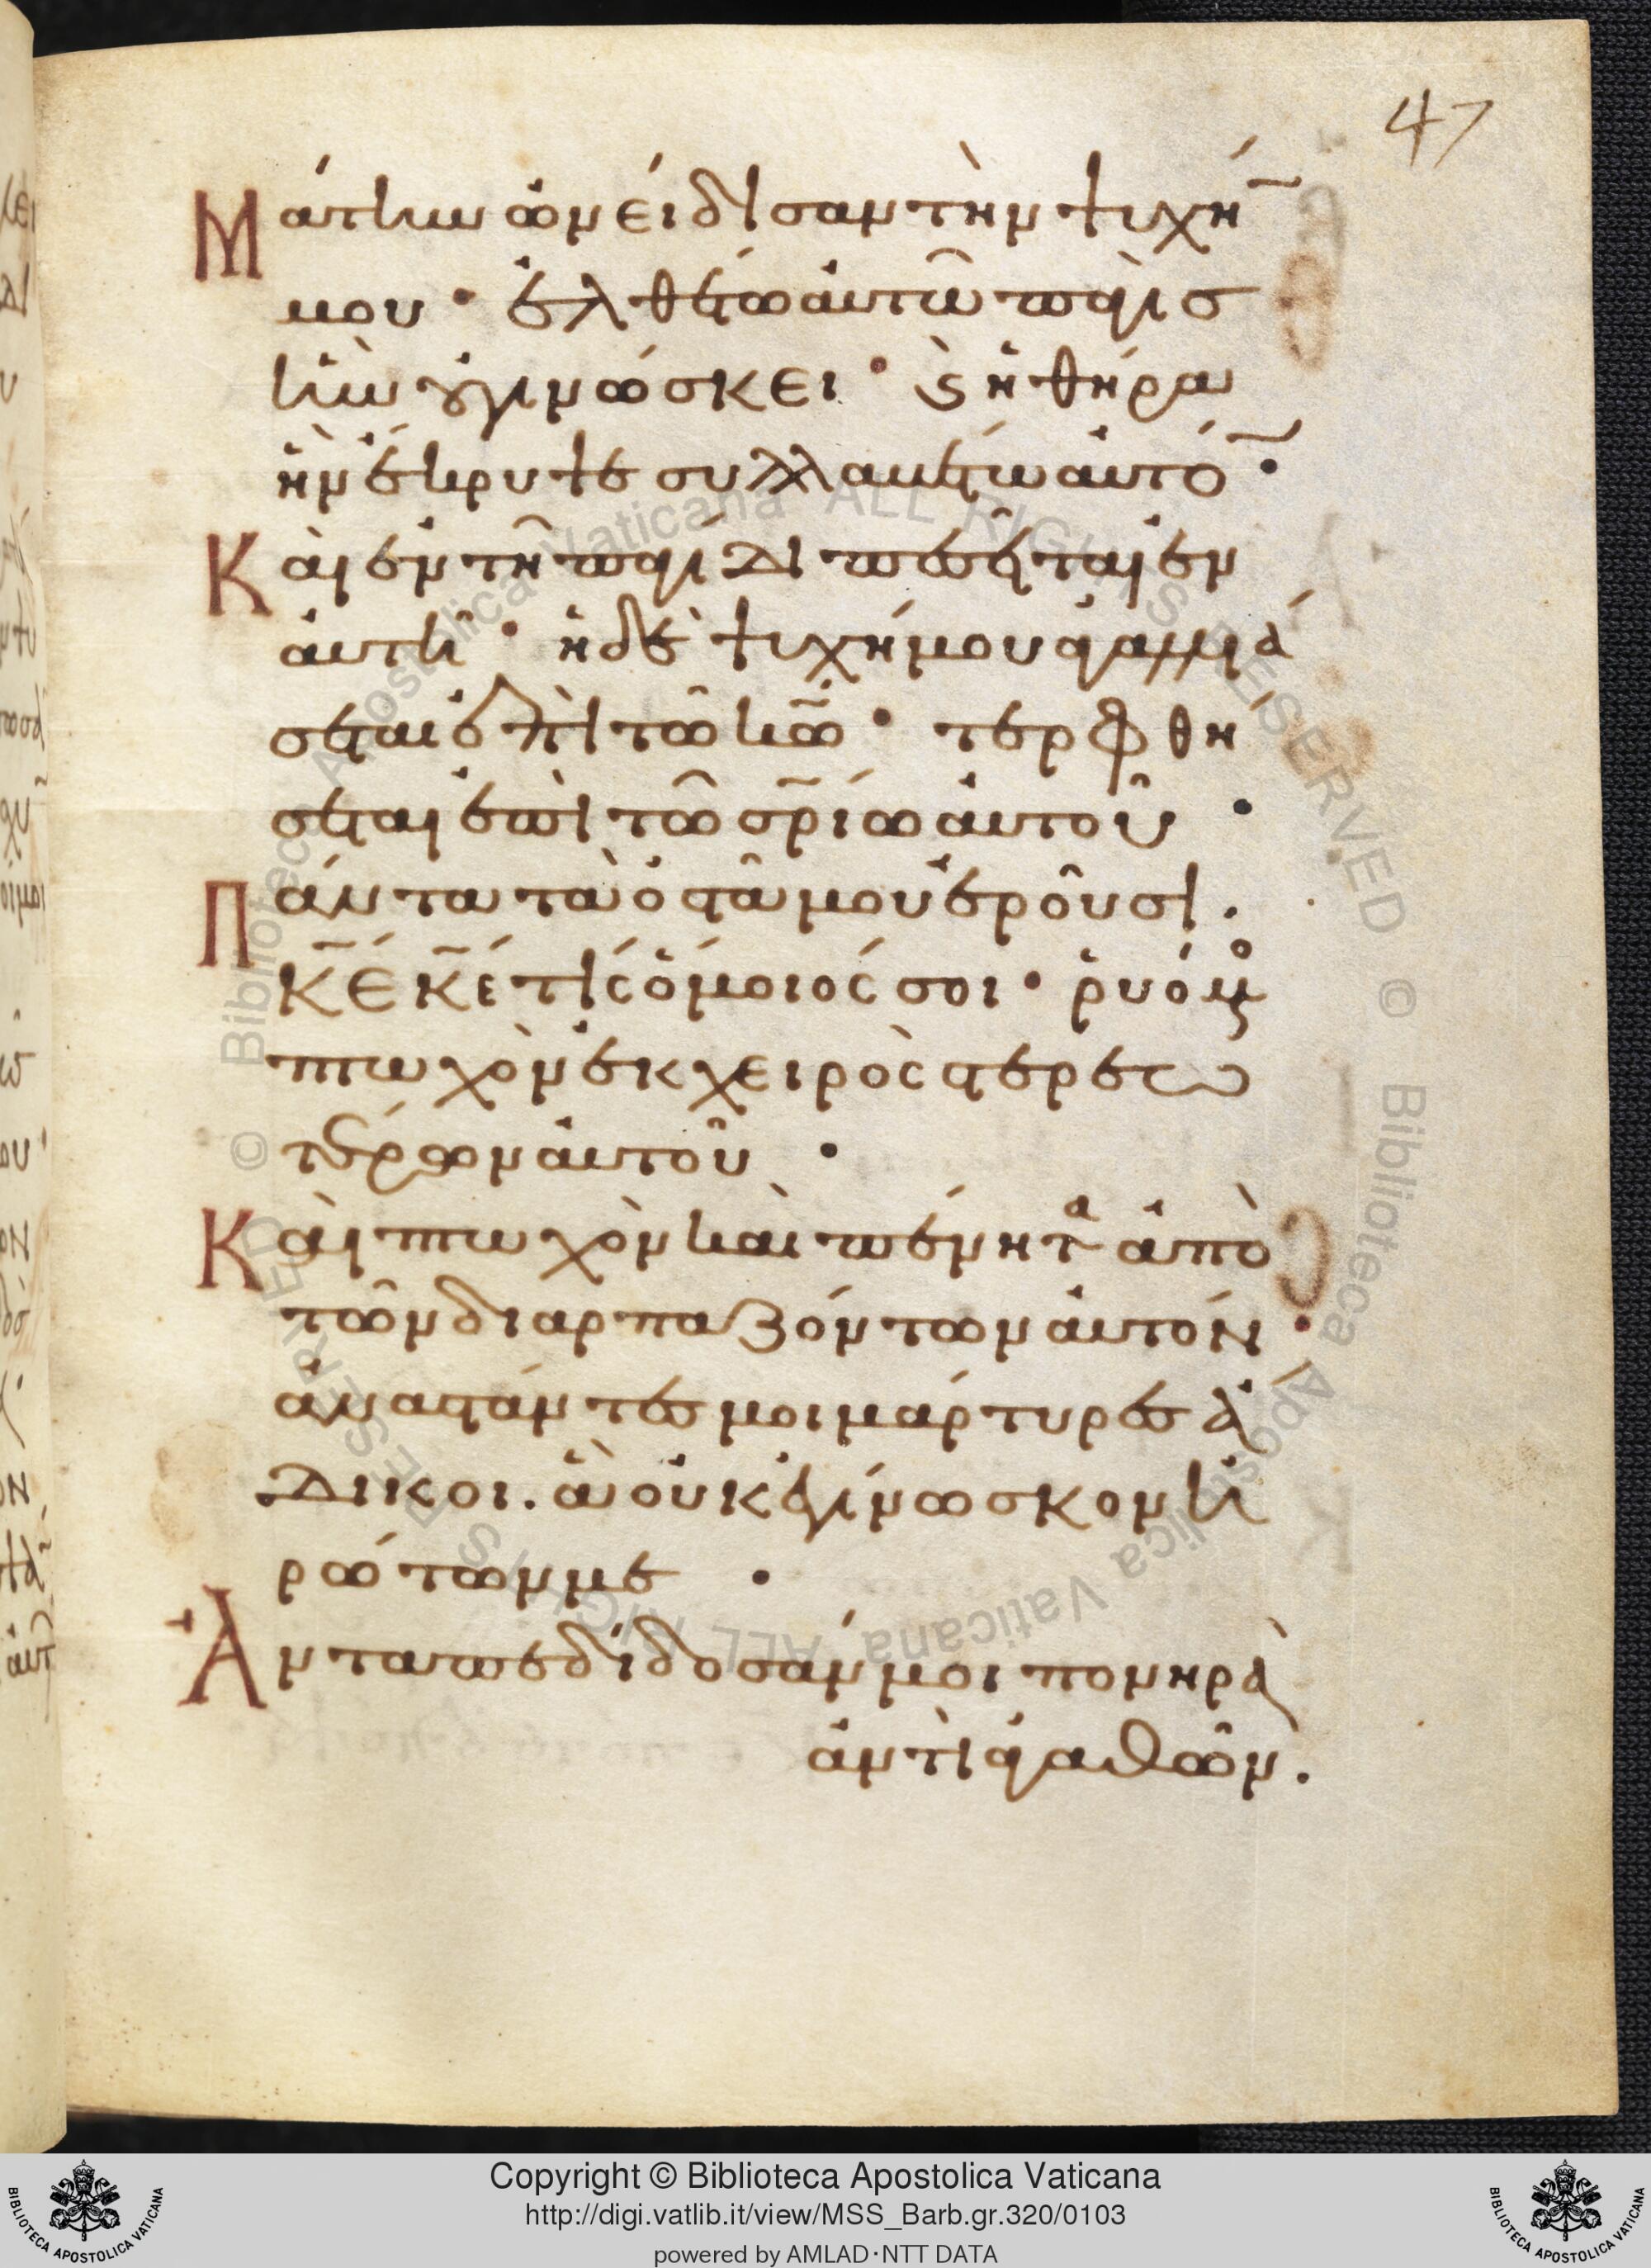 47
Μάτην ὠνείδισαν τὴν ψυχή̅
μου · ἐλθέτω αὐτῶ παγὶσ
ἣν οὐ γινώσκει · ϗ ἡ θήρα
ἣν ἔκρυψε συλλαβέτω αὐτό̅ ·
Καὶ ἐν τῆ παγίδι πεσεῖται ἐν
αὐτῆ · ἡ δὲ ψυχή μου ἀγαλλιά
σεται ἐπὶ τῶ κ̅ω̅ · τερφθή
σεται ἐπὶ τῶ σ̅ρ̅ίω αὐτοῦ ·
Πάντα τὰ ὀστᾶ μου ἐροῦσι .
Κ̅Ε̅ Κ̅Ε̅ τίς ὅμοιός σοι · ῥυόμ̥
πτωχὸν ἐκ χειρὸς στερεω
τέρων αὐτοῦ ·
Καὶ πτωχὸν καὶ πένητα ἀπὸ
τῶν διαρπαζόντων αὐτόν ·
ἀναστάντες μοι μάρτυρες ἄ
δικοι . ἃ οὐκ ἐγίνωσκον ἠ
ρώτων με ·
Ἀνταπεδίδοσάν μοι πονηρὰ
ἀντὶ ἀγαθῶν .
© Biblioteca Apostolica Vaticana ALL RIGHTS RESERVED
© Biblioteca Apostolica Vaticana ALL RIGHTS RESERVED
Copyright © Biblioteca Apostolica Vaticana
http://digi.vatlib.it/view/MSS_Barb.gr.320/0103
powered by AMLAD·NTT DATA
BIBLIOTECA APOSTOLICA VATICANA
BIBLIOTECA APOSTOLICA VATICANA